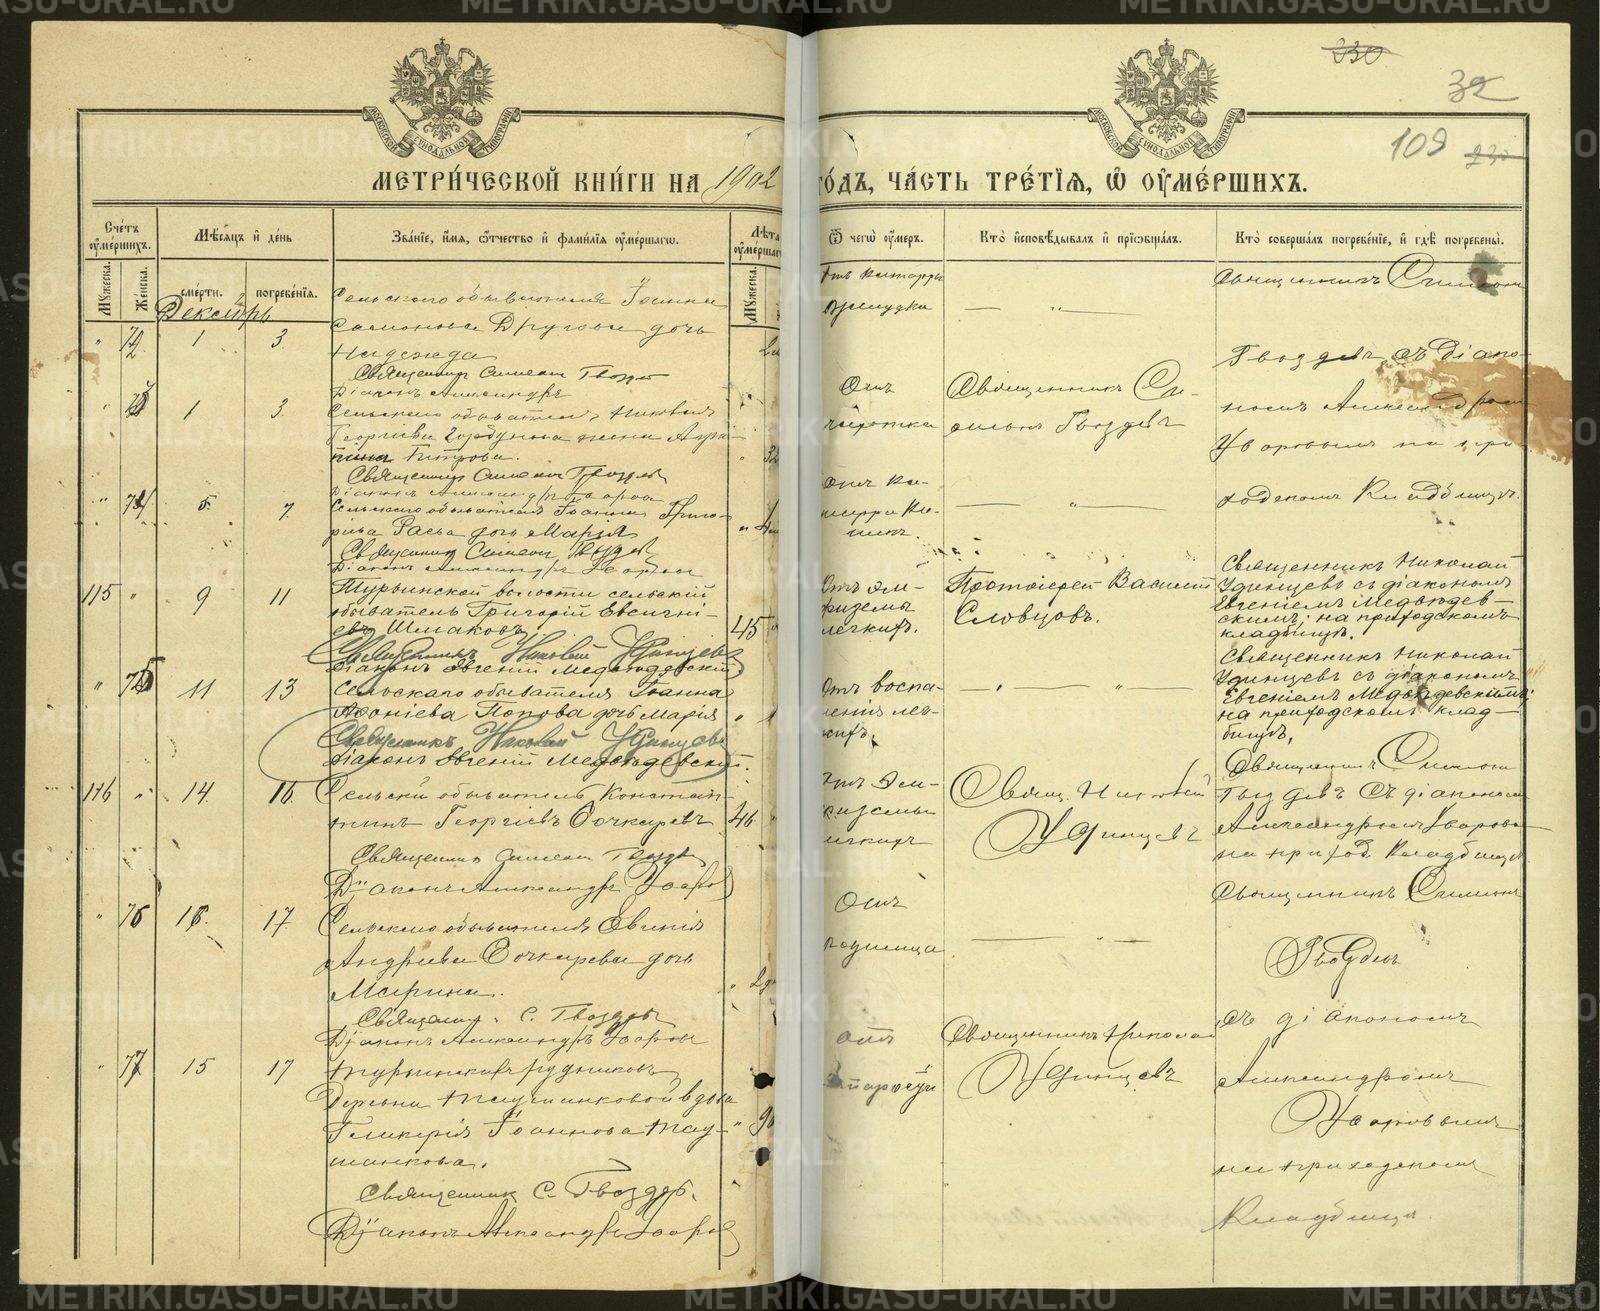 МЕТРИ́ЧЕСКОЙ КНИ́ГИ НА 1902
ГО́ДЪ, ЧА́СТЬ ТРЕ́ТІѦ, Ѿ ОУ҆МЕ́РШИХЪ.
230
32
109
230
Счетъ оумершихъ.
Мѣсяцъ и день
Званіе, имя, отчество и фамилія оумершагѡ.
Лѣта оумершаг
Ѿ чегѡ оумеръ.
Кто исповѣдывалъ и пріобщалъ.
Кто совершалъ погребеніе, и гдѣ погребены.
Мужеска.
Женска.
смерти.
погребенія.
Мужеска.
Декабрь
72
1
3
Сельскаго обывателя Іоанна
Другова дочь
Надежда
Священник Симеон Гвоздев
Діаконъ Александръ
От катарра
желудка
Священникъ Симеонъ
Гвоздевъ съ діако-
номъ Александромъ
Уваровымъ на при-
ходскомъ кладбищѣ.
73
1
3
Сельскаго обывателя
Георгіева жена
Петрова.
32
Священник Симеон Гвоздев
Діаконъ Александръ Уваров
Отъ
чахотки
Священникъ Си-
меонъ Гвоздевъ
74
5
7
Сельскаго обывателя Іоанна Григо-
рьева дочь Марія
Священник Симеон Гвоздев
Діаконъ Александръ Уваров
Отъ ка-
тарра ки-
шекъ.
115
9
11
Турьинской волости сельскій
обыватель Григорій Евсигні-
евъ Шмаковъ
45
Священникъ Николай Удинцевъ
Діаконъ Евгеній Медвѣдевскій
Отъ эм-
физемы
легкихъ.
Протоіерей Василій
Словцовъ.
Священникъ Николай
Удинцевъ съ діакономъ
Евгеніемъ Медвѣдев-
скимъ; на приходскомъ
кладбищѣ.
75
11
13
Сельскаго обывателя Іоанна
Аѳоніева Попова дочь Марія
1
Священникъ Николай Удинцевъ
Діаконъ Евгеній Медвѣдевскій.
Отъ воспа-
ленія лег-
кихъ.
Священникъ Николай
Удинцевъ съ діакономъ
Евгеніемъ Медвѣдевскимъ;
на приходскомъ клад-
бищѣ.
116
14
16
Сельскій обыватель Констан-
тинъ Георгіевъ Бочкаревъ
46
Священник Симеон Гвоздев
Діаконъ Александръ Уваров
Отъ эм-
физемы
легкихъ
Свящ. Николай
Удинцевъ
Священникъ Симеонъ
Гвоздевъ съ діакономъ
Александромъ Уваровымъ
на приход. кладбищѣ
76
16
17
Сельскаго обывателя Евгенія
Андреева Бочкарева дочь
Марина.
Священник С. Гвоздев
Діаконъ Александръ Уваров
Отъ
родимца
Священникъ Симеонъ
Гвоздевъ
съ діакономъ
Александромъ
Уваровымъ
на приходскомъ
кладбищѣ.
77
15
17
Турьинскихъ рудниковъ
вдова
Гликерія Іоаннова
90
Священник С. Гвоздев.
Діаконъ Александръ Уваров
отъ
старости
Священникъ Николай
Удинцевъ
METRIKI.GASO-URAL.RU